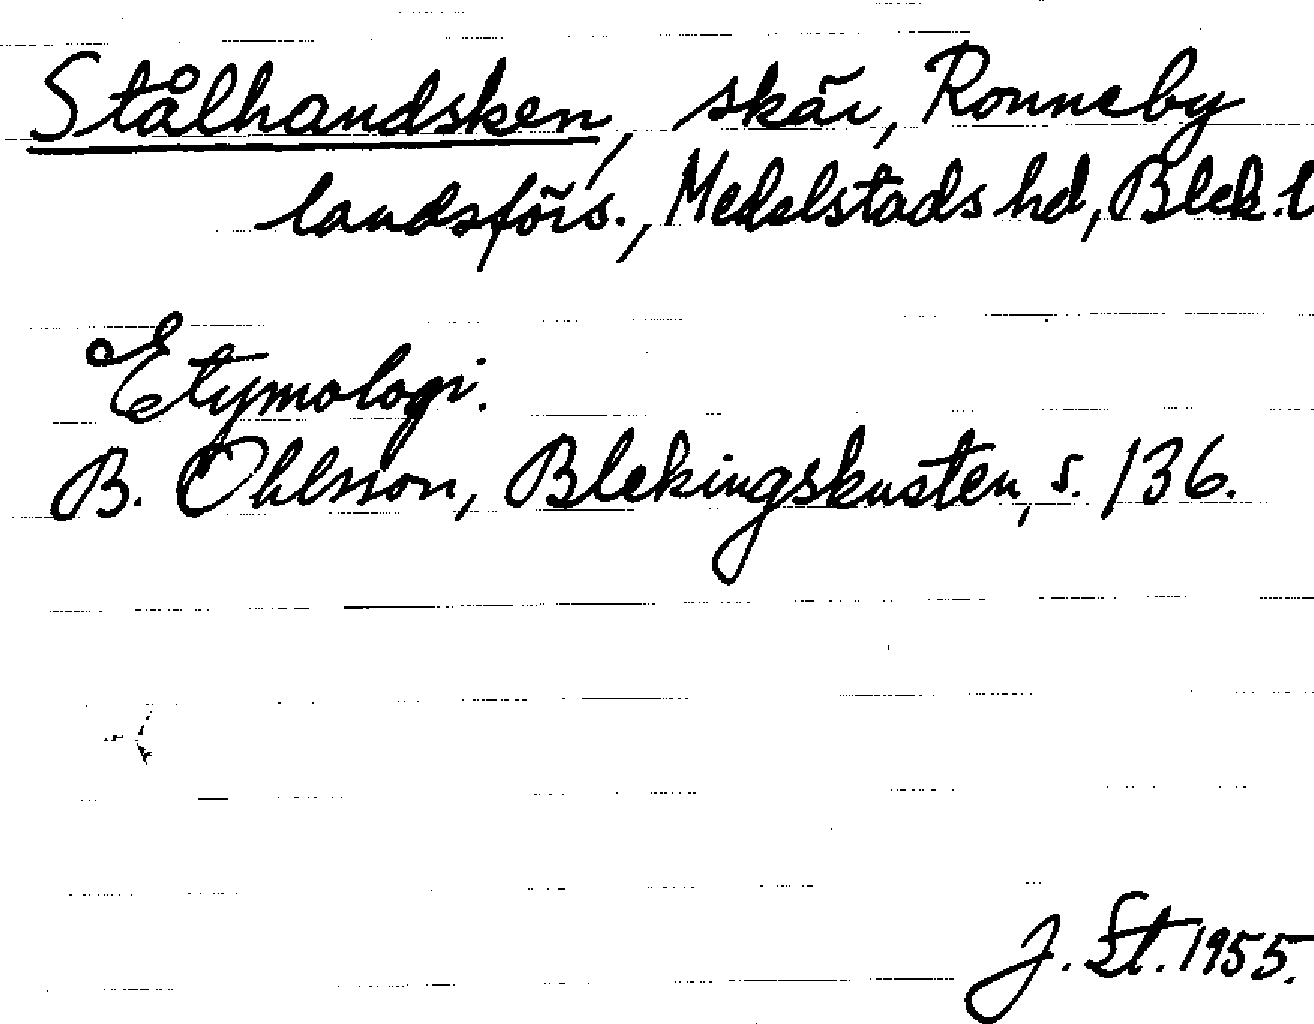 Stålhandsken, skär, Ronneby
landsförs., Medelstads hd, Blek. l
Etymologi.
B. Ohlsson, Blekingskusten, s. 136.
J. St. 1955.